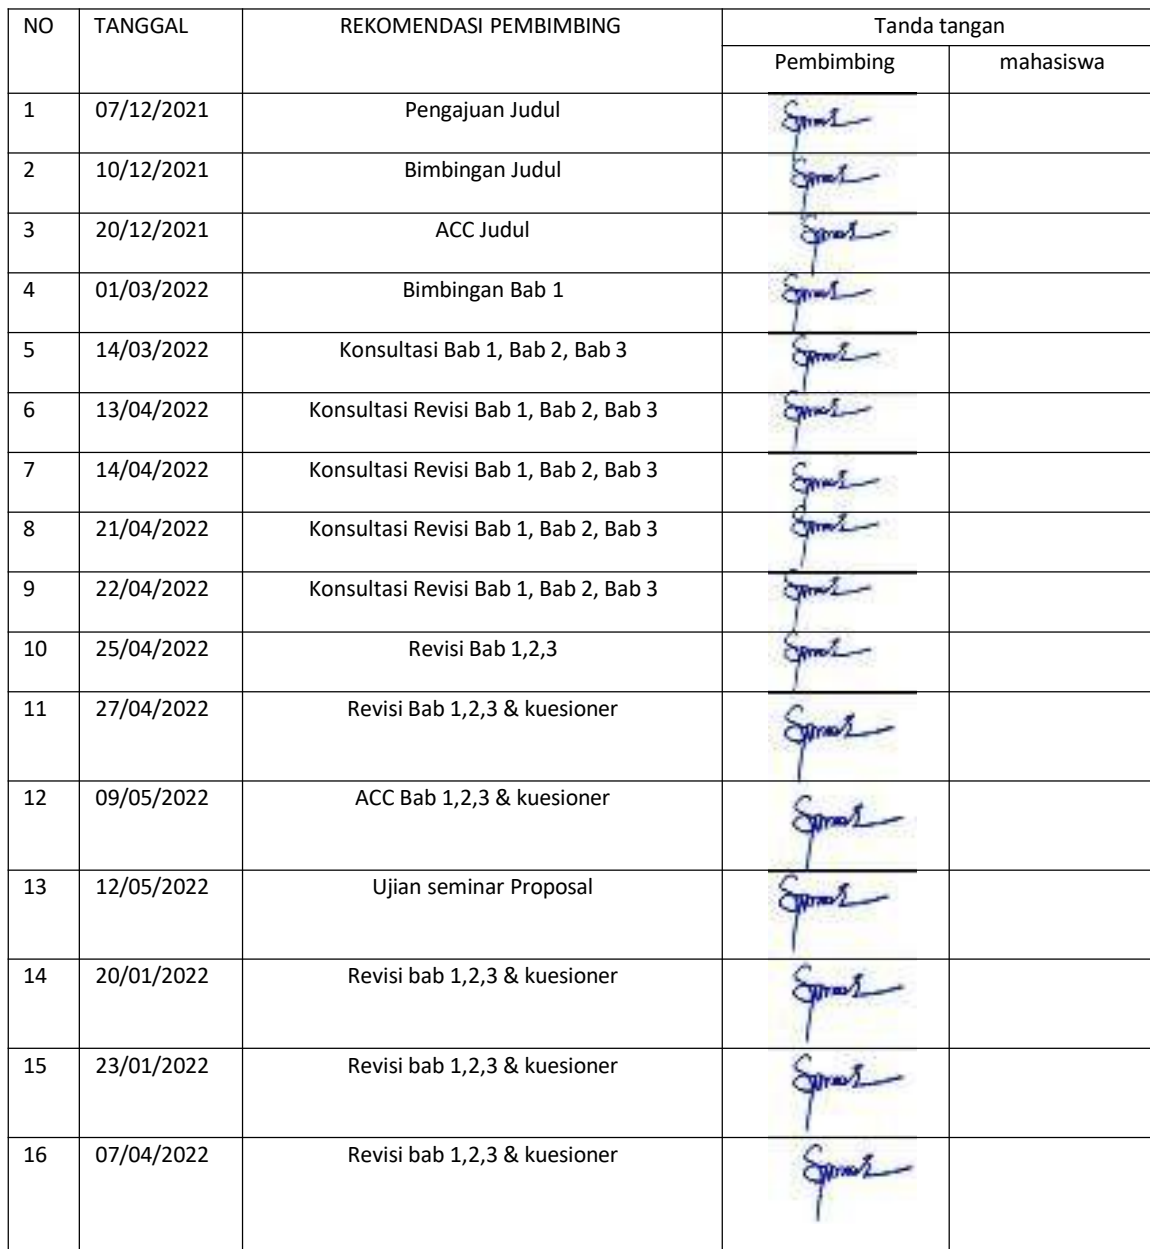 NO TANGGAL REKOMENDASI PEMBIMBING Tanda tangan
Pembimbing mahasiswa
1 07/12/2021 Pengajuan Judul
2 10/12/2021 Bimbingan Judul
3 20/12/2021 ACC Judul
4 01/03/2022 Bimbingan Bab 1
5 14/03/2022 Konsultasi Bab 1, Bab 2, Bab 3
6 13/04/2022 Konsultasi Revisi Bab 1, Bab 2, Bab 3
7 14/04/2022 Konsultasi Revisi Bab 1, Bab 2, Bab 3
8 21/04/2022 Konsultasi Revisi Bab 1, Bab 2, Bab 3
9 22/04/2022 Konsultasi Revisi Bab 1, Bab 2, Bab 3
10 25/04/2022 Revisi Bab 1,2,3
11 27/04/2022 Revisi Bab 1,2,3 & kuesioner
12 09/05/2022 ACC Bab 1,2,3 & kuesioner
13 12/05/2022 Ujian seminar Proposal
14 20/01/2022 Revisi bab 1,2,3 & kuesioner
15 23/01/2022 Revisi bab 1,2,3 & kuesioner
16 07/04/2022 Revisi bab 1,2,3 & kuesioner